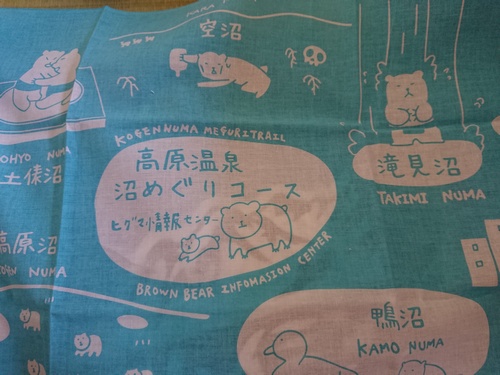 NUMA
空沼
KOGENNUMA MEGURITRAIL
高原温泉
沼めぐりコース
ヒグマ情報センター
BROWN BEAR INFOMASION CENTER
OHYO NUMA
土俵沼
滝見沼
TAKIMI NUMA
高原沼
NUMA
鴨沼
KAMO NUMA